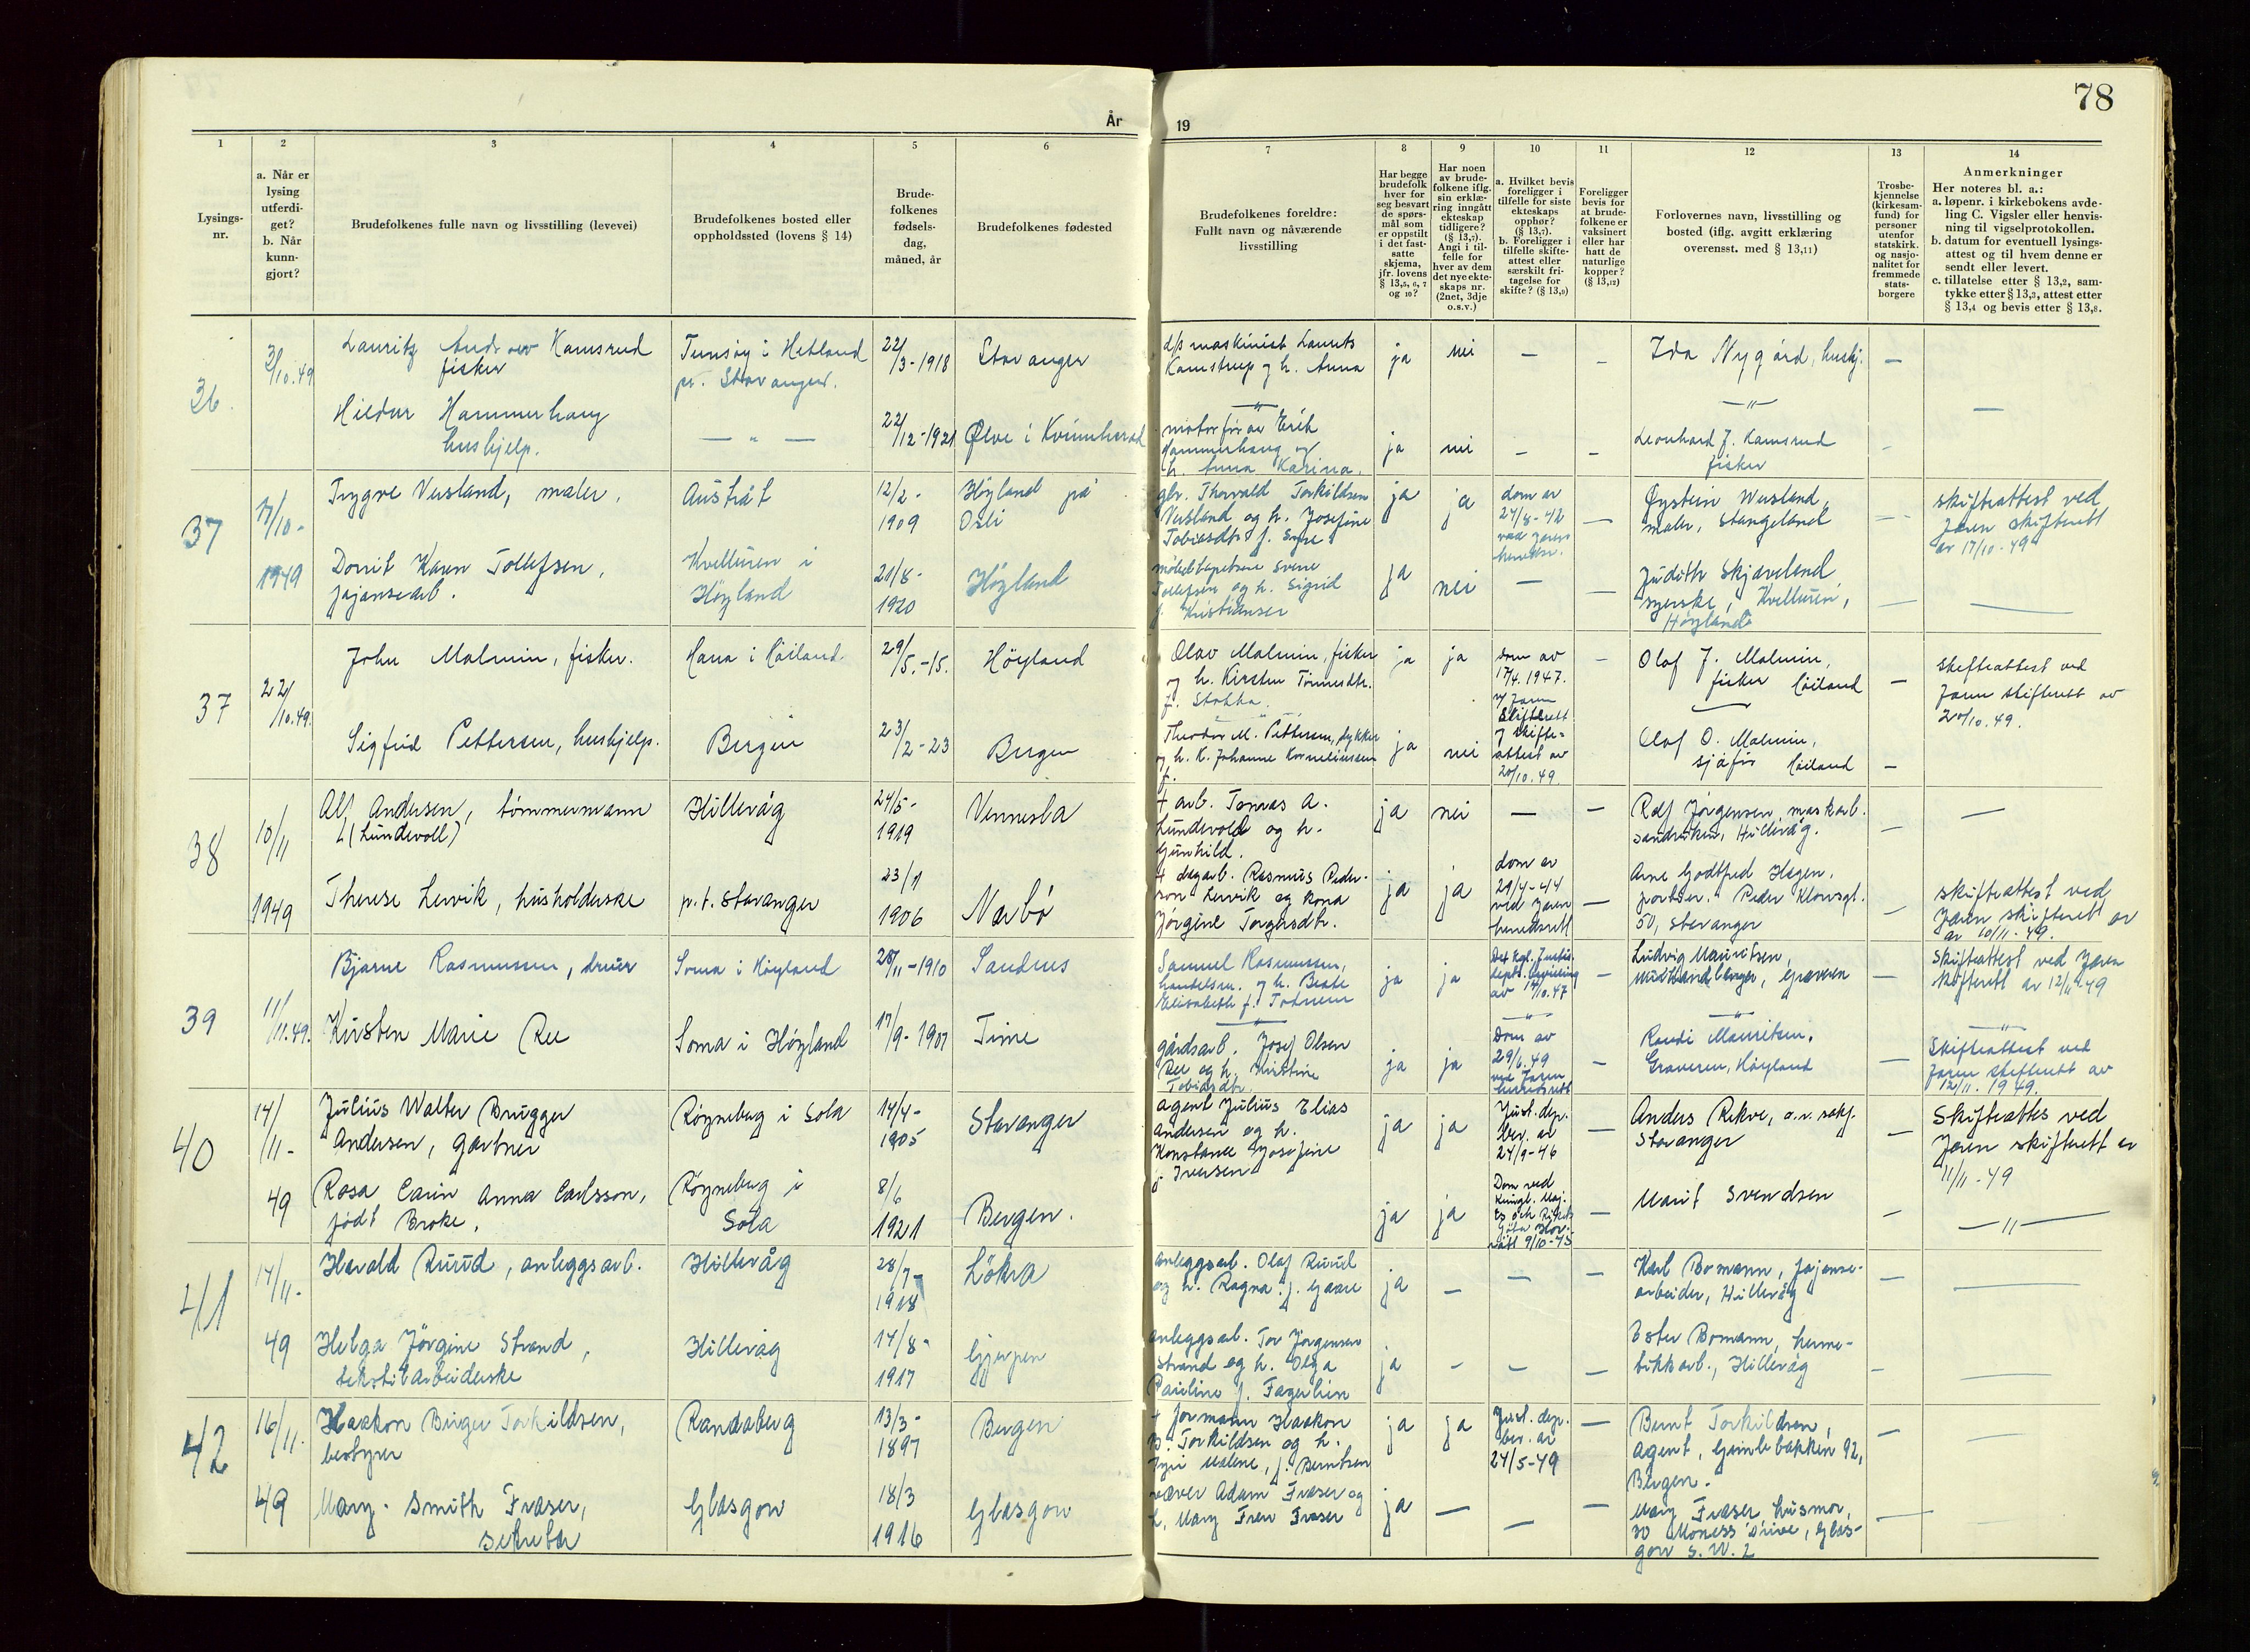 78
År
19
1
2
3
4
5
6
7
8
9
10
11
12
13
14
Lysings-
nr.
a. Når er
lysing
utferdi-
get?
b. Når
kunn-
gjort?
Brudefolkenes fulle navn og livsstilling (levevei)
Brudefolkenes bosted eller
oppholdssted (lovens § 14)
Brude-
folkenes
fødsels-
dag,
måned, år
Brudefolkenes fødested
Brudefolkenes foreldre:
Fullt navn og nåværende
livsstilling
Har begge
brudefolk
hver for
seg besvart
de spørs-
mål som
er oppstilt
i det fast-
satte
skjema,
jfr. lovens
§ 13,5, 6, 7
og 10?
Har noen
av brude-
folkene iflg.
sin erklæ-
ring inngått
ekteskap
tidligere?
(§ 13,7).
Angi i til-
felle for
hver av dem
det nye ekte-
skaps nr.
(2net, 3dje
o.s.v.)
a. Hvilket bevis
foreligger i
tilfelle for siste
ekteskaps
opphør?
(§ 13,7).
b. Foreligger i
tilfelle skifte-
attest eller
særskilt fri-
tagelse for
skifte? (§ 13,9)
Foreligger
bevis for
at brude-
folkene er
vaksinert
eller har
hatt de
naturlige
kopper?
(§ 13,12)
Forlovernes navn, livsstilling og
bosted (iflg. avgitt erklæring
overensst. med § 13,11)
Trosbe-
kjennelse
(kirkesam-
fund) for
personer
utenfor
statskirk.
og nasjo-
nalitet for
fremmede
stats-
borgere
Anmerkninger
Her noteres bl. a.:
a. løpenr. i kirkebokens avde-
ling C. Vigsler eller henvis-
ning til vigselprotokollen.
b. datum for eventuell lysings-
attest og til hvem denne er
sendt eller levert.
c. tillatelse etter § 13,2, sam-
tykke etter § 13,3, attest etter
§ 13,4 og bevis etter § 13,8.
36
/10.49
Lauritz Kamsrud
fisker
Tunsøy i Hetland
pr. Stavanger.
22/3-1918
Stavanger
maskinist Laurits
Kamstrup og h. Anna
ja
nei
—
—
Ida Nygård, hushj.
—
Hildur Hammerhaug
hushjelp.
— " —
22/12-1921
Ølve i Kvinnherad
Erik
Hammerhaug og
h. Anna Karina.
ja
nei
—
—
Leonhard J. Kamsrud
fisker
—
37
17/10-
1949
Trygve Vesland, maler.
Austråt
12/2-
1909
Høyland på
gbr. Thorvald Torkildsen
Vesland og h. Josefine
Tobiasdtr f.
ja
ja
dom av
24/8-42
ved Jæren
herredsr.
—
Øystein Wesland,
maler, Stangeland
—
skifteattest ved
Jæren skifterett
av 17/10-49
Dorrit Karen Tollefsen,
fajansearb.
Kvelluren i
Høyland
21/8-
1920
Høyland
Tollefsen og h. Sigrid
f. Kristiansen
ja
nei
—
—
Judith Skjæveland
syerske, Kvelluren,
Høyland
—
37
22/10.49.
John Malmin, fisker.
Hana i Höiland.
29/5.-15.
Höyland
Olav Malmin, fisker
og h. Kirsten Tønnesdtr.
f. Stokka.
ja
ja
dom av
17/4.1947.
v/ Jæren
skifterett
—
Olaf J. Malmin,
fisker Höiland
—
skifteattest ved
Jæren skifterett av
20/10.49.
Sigfrid Pettersen, hushjelp.
Bergen
23/2-23
Bergen
Theodor M. Pettersen, dykker
og h. K. Johanne Korneliussen
f.
ja
nei
skifte-
attest av
20/10.49.
Olaf O. Malmin,
sjåfør Höiland
—
38
10/11
1949
Alf Andersen, tömmermann
(Lundevoll)
Hillevåg
24/5-
1919
Vennesla
+ arb. Tomas A.
Lundevold og h.
Gunhild.
ja
nei
—
—
Rolf Jørgensen, maskarb.
Sandviken, Hillevåg.
—
Therese Lervik, husholderske
p.t. Stavanger
23/1
1906
Nærbö
+ dagarb. Rasmus Peder-
sen Lervik og kona
Jörgine Torgersdtr.
ja
ja
dom av
29/4-44
ved Jæren
herredsrett
—
Arne Godtfred Hagen,
portier. Peder Klowsgt.
50, Stavanger
—
skifteattest ved
Jæren skifterett av
av 10/11-49.
39
11/11.49.
Bjarne Rasmussen,
Soma i Høyland
28/11-1910
Sandnes
Samuel Rasmussen,
handelsm. og h. Beate
Elisabeth f.
ja
ja
Det kgl. Justis-
dept. bevilling
av 17/10.47
—
Ludvig Mauritsen,
Graveren
—
Skifteattest ved Jæren
skifterett av 12/11-49
Kirsten Marie Ree
Soma i Höyland
17/9-1907
Time
gårdsarb. Josef Olsen
Ree og h. Kristine
Tobiasdtr.
ja
ja
Dom av
29/6.49
ved Jæren
herredsrett
—
Randi Mauritsen,
Graveren, Höyland
—
Skifteattest ved
Jæren skifterett av
12/11. 1949.
40
14/11-
49
Julius Walter Brugger
Andersen, Gartner
Røyneberg i Sola
14/4-
1905
Stavanger
Agent Julius Elias
Andersen og h.
Konstance Josefine
f. Iversen
ja
ja
Just.dep.
bev. av
24/9-46
—
Anders Rekve, o.r. sakf.
Stavanger
—
Skifteattes ved
Jæren skifterett av
11/11-49
Rosa Carin Anna Carlsson,
født Broke.
Röyneberg i
Sola
8/6
1921
Bergen.
ja
ja
Dom ved
Kungl. Maj.
9/10-45
—
Marit Svendsen
—
— " —
41
14/11-
49
Harald Ruud, anleggsarb.
Hillevåg
28/7-
1918
Lökva
anleggsarb. Olaf Ruud
og h. Ragna f. Gaare
ja
—
—
—
Karl Bomann, fajanse-
arbeider, Hillevåg
—
Helga Jörgine Strand,
tekstilarbeiderske
Hillevåg
14/8-
1917
Gjerpen
anleggsarb. Tor Jörgensen
Strand og h. Olga
Pauline f. Fagerlien
ja
—
—
—
Ester Bomann, herme-
tikkarb., Hillevåg
—
42
16/11.
49
Haakon Birger Torkildsen,
bestyrer
Randaberg
13/3-
1897
Bergen
+ formann Haakon
B. Torkildsen og h.
Malene, f. Berntsen
ja
ja
Just. dep.
bev. av
24/5-49
—
Bernt Torkildsen,
agent, Gimlebakken 92,
Bergen.
—
Mary Smith Fraser,
sekretær
Glasgow
18/3
1916
Glasgow
væver Adam Fraser og
h. Mary Frew Fraser
ja
—
—
—
Mary Fraser husmor,
30 Moness Drive, Glas-
gow S.W. 2
—